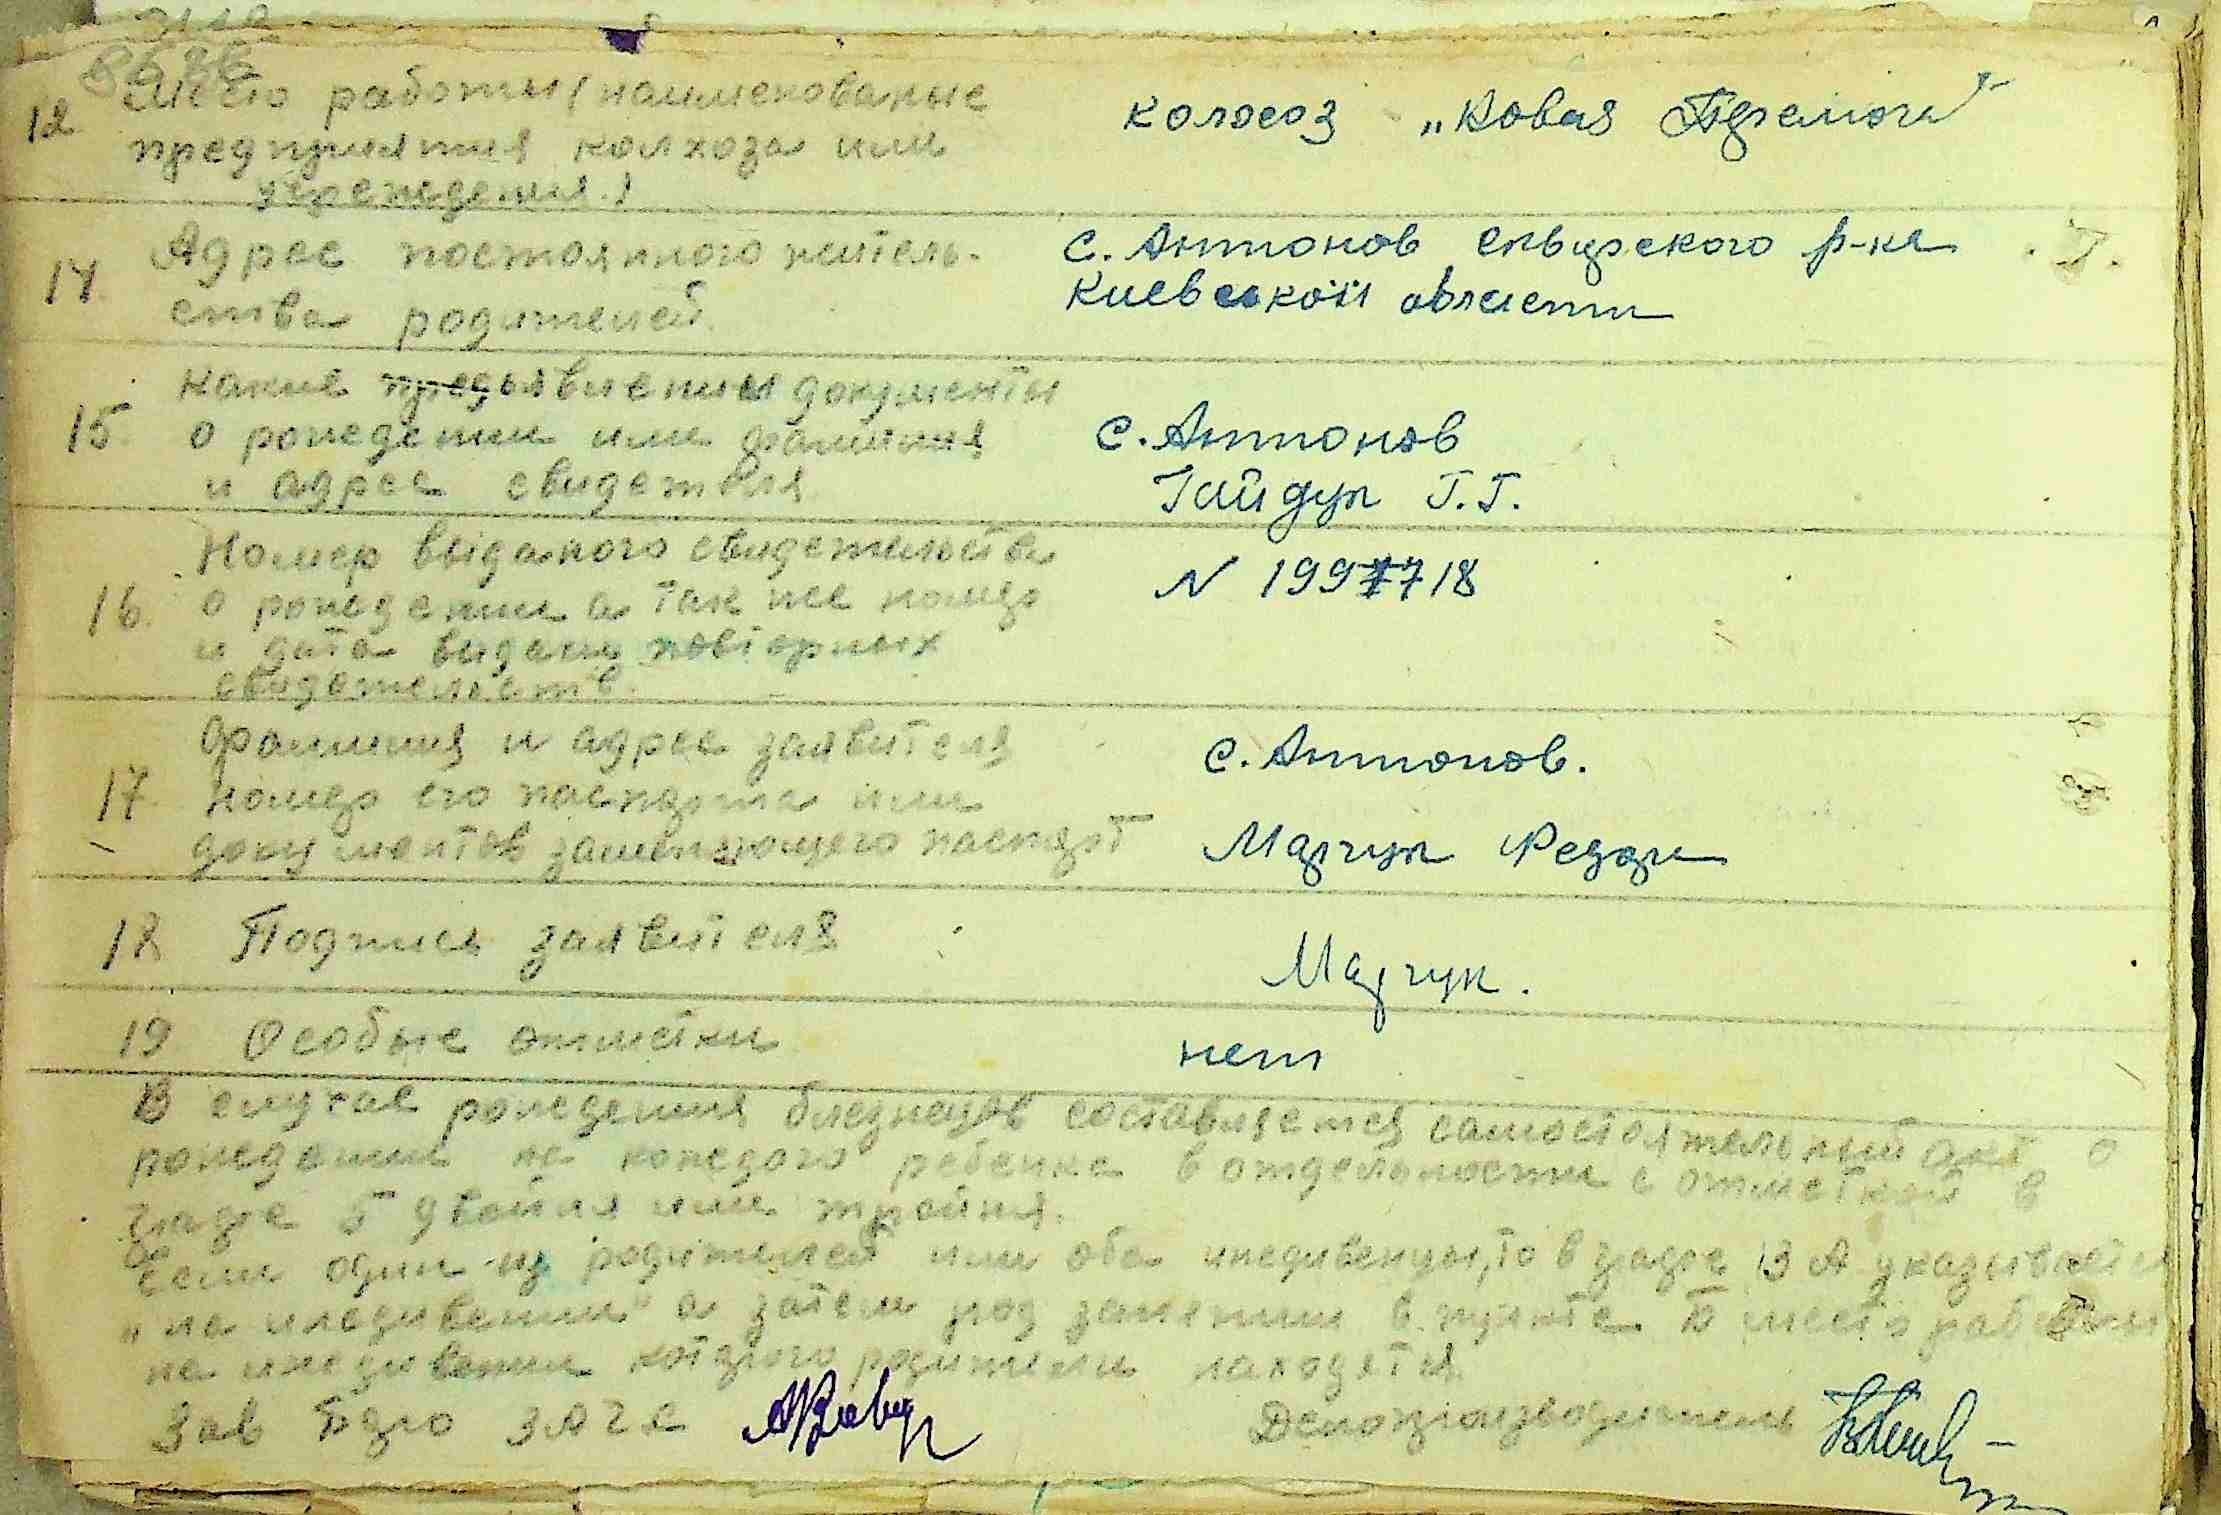 12 Место работы (наименованые колосоз „Новая Перемога"
предприятия колхоза или
учреждения.)
14. Адрес постоянного житель- с. Антонов Сквирского р-на
ства родителей. Киевской области
15. Какие предъявленны документы
о рождении или фамилия с. Антонов
и адрес свидетеля Гайдук Г.Г.
Номер выданого свидетельства N 199718
16. о рождении а так же номер
и дата выдачи повторных
свидетельств.
Фамилия и адрес заявителя с. Антонов.
17. Номер его паспорта или
документов заменяющего паспорт Марчук Федор
18 Подпись заявителя Марчук.
19 Особые отметки нет
В случае рождения близнецов составляется самостоятельный акт о
рождении на каждого ребенка в отдельности с отметкой в
графе 5 двойня или тройня.
Если один из родителей или оба иждивенцы, то в графе 13 А указывается
„на иждивении" а затем под занятии в пункте Б место работы
на иждивении которого родители находятся.
Зав Бюро ЗАГСа Делопроизводитель